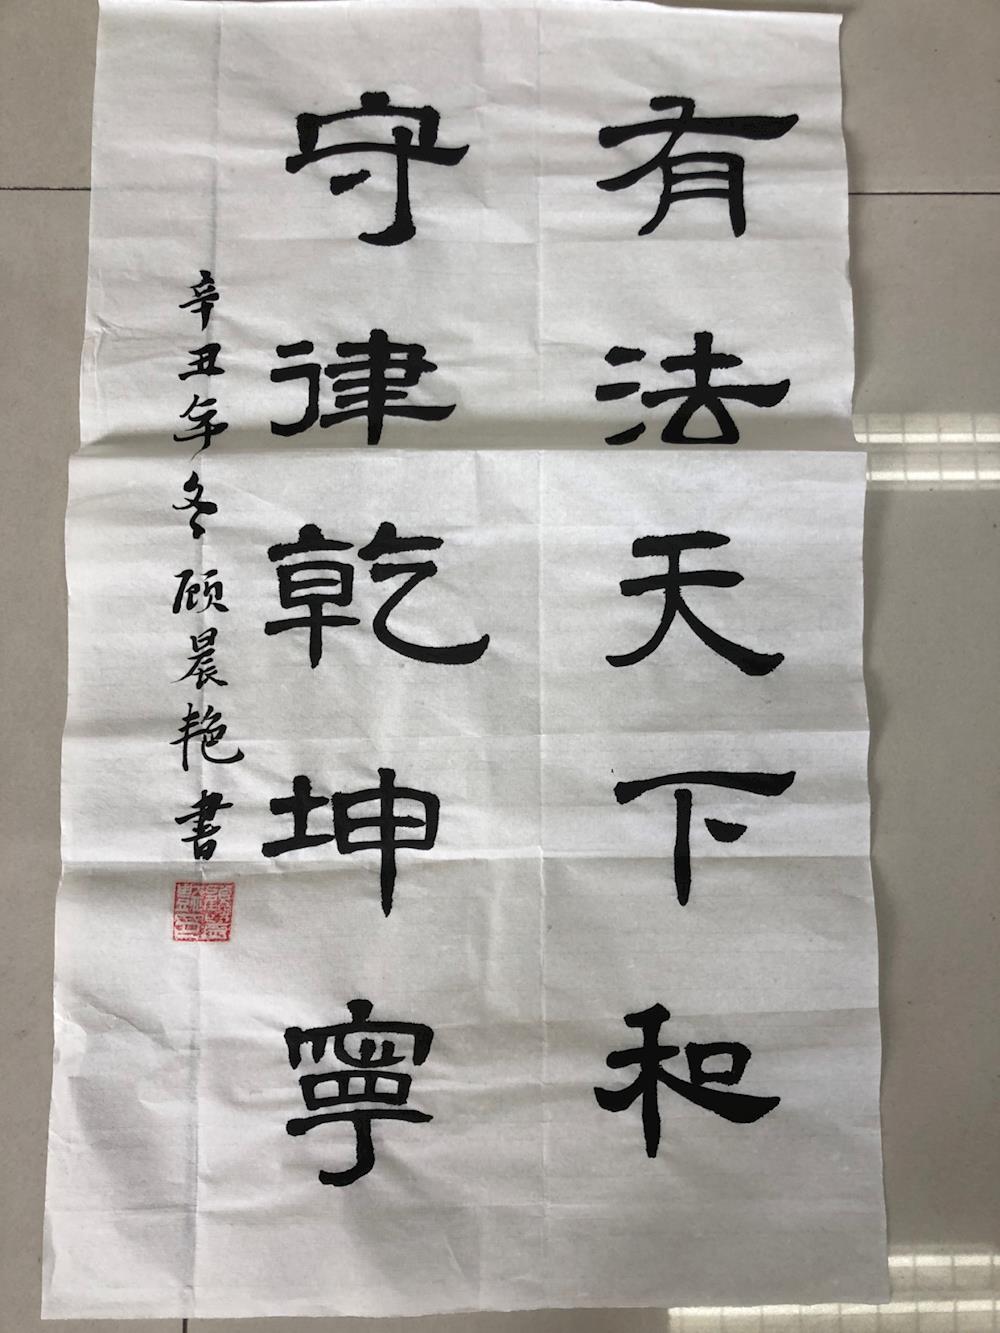 有法天下和
守律乾坤寧
辛丑年冬顾晨艳書